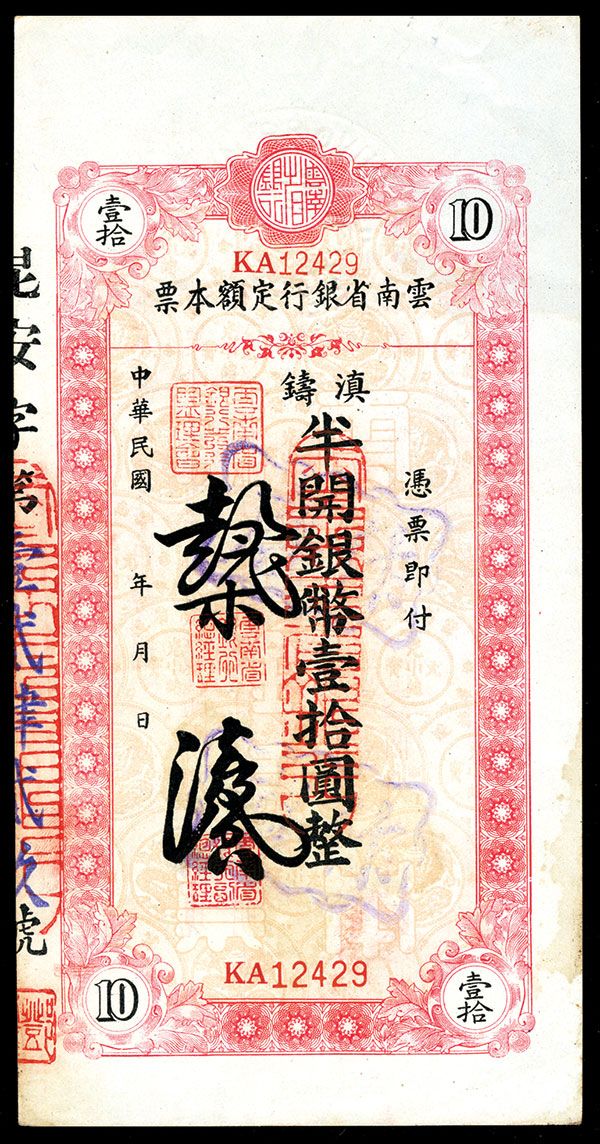 壹拾
10
KA12429
雲南省銀行定額本票
憑票即付
滇鑄
半開銀幣壹拾圓整
中華民國 年 月 日
昆安字第
號
KA12429
10
壹拾